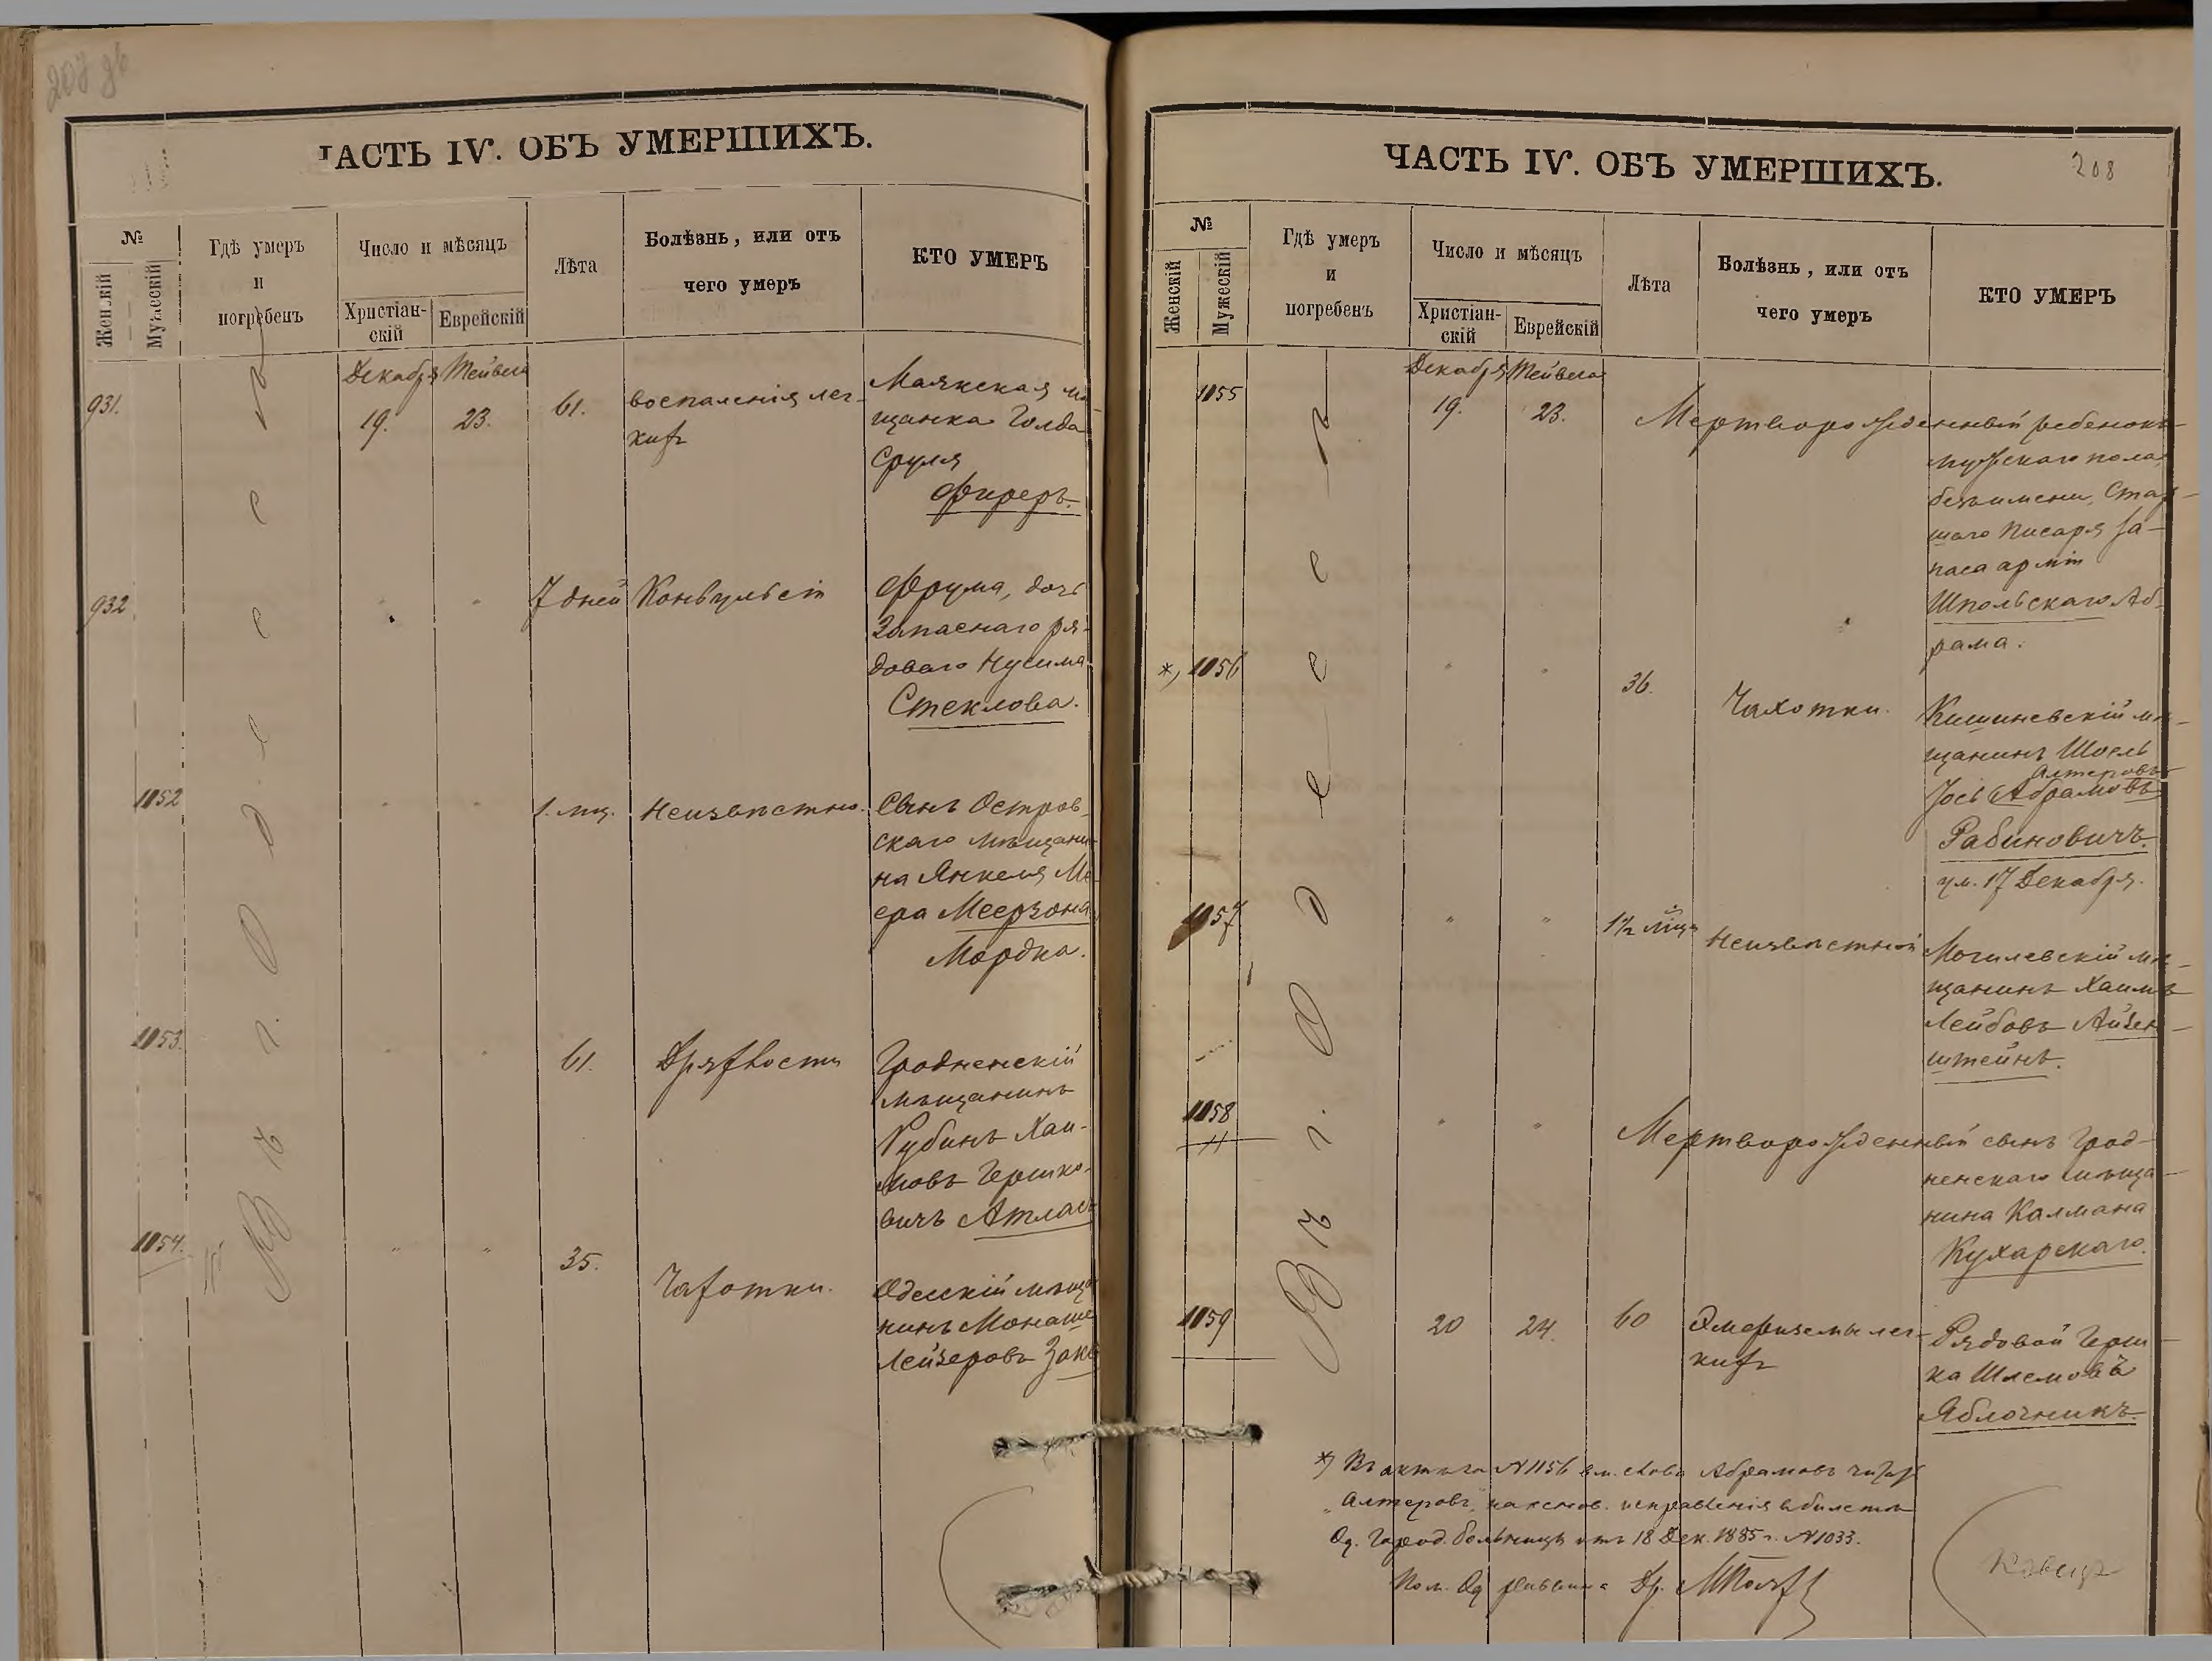 ЧАСТЬ IV. ОБЪ УМЕРШИХЪ.
№
Женскій
Мужескій
Гдѣ умеръ
и
погребенъ
Число и мѣсяцъ
Христіан-
скій
Еврейскій
Лѣта
Болѣзнь, или отъ
чего умеръ
КТО УМЕРЪ
Въ г. Одессѣ
Декабря Тейвеса
931.
19.
23.
61.
воспаленія лег-
кихъ
Маякская мѣ-
щанка Голда
Сруля
Фиреръ.
932
"
"
7 дней
Конвульсіи
Фрума, дочь
Запаснаго ря-
доваго Нусима
Стеклова.
1052
"
"
1. мц.
Неизвѣстно.
Сынъ Остров-
скаго мѣщани-
на Янкеля Ме-
ера Меерзона
Мордка.
1053.
"
"
61.
Дряхлости
Гродненскій
мѣщанинъ
Рубинъ Хаи-
мовъ Гершко-
вичъ Атласъ
1054.
"
"
35.
Чахотки.
Одесскій мѣща
нинъ Монаше
Лейзеровъ Закъ
ЧАСТЬ IV. ОБЪ УМЕРШИХЪ.
208
№
Женскій
Мужескій
Гдѣ умеръ
и
погребенъ
Число и мѣсяцъ
Христіан-
скій
Еврейскій
Лѣта
Болѣзнь, или отъ
чего умеръ
КТО УМЕРЪ
Въ г. Одессѣ
Декабря Тейвеса
1055
19.
23.
Мертворожденный ребенокъ
мужскаго пола,
безъ имени, Стар-
шаго Писаря За-
паса арміи
Шпольскаго Аб-
рама.
*) 1056
"
"
36.
Чахотки.
Кишиневскій мѣ-
щанинъ Шоель
Алтеровъ
Іось Абрамовъ
Рабиновичъ.
ум. 17 Декабря.
1057
"
"
1½ мца
Неизвѣстной
Могилевскій мѣ-
щанинъ Хаимъ
Лейбовъ Айзен-
штейнъ.
1058
"
"
Мертворожденный сынъ Грод-
ненскаго мѣща-
нина Калмана
Кухарскаго.
1059
20
24.
60
Эмфиземы лег-
кихъ
Рядовой Герш-
ка Шлемовъ
Яблочникъ.
*) Въ актѣ за №1156 вм. слова Абрамовъ
"Алтеровъ" на основ. исправленія въ билетѣ
Од. Город. больницы отъ 18 Дек. 1885 г. №1033.
Пом. Од. Раввина Др.